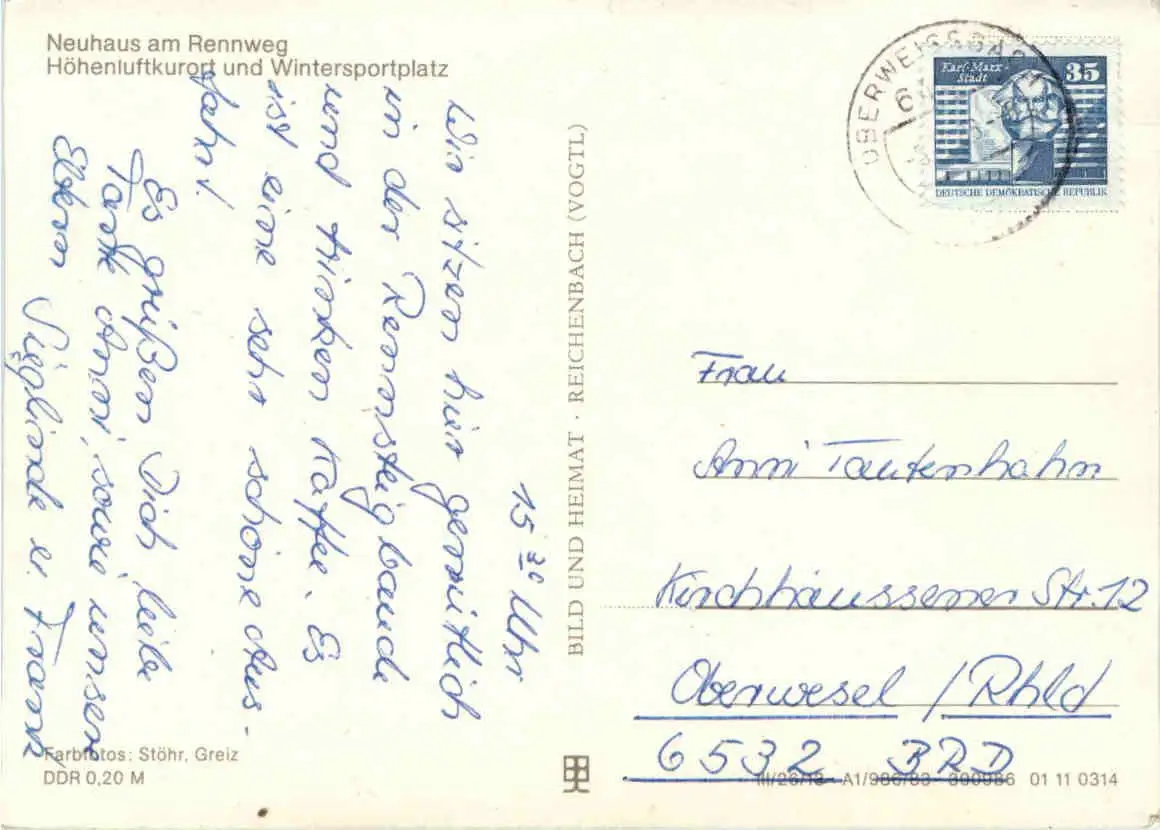 Neuhaus am Rennweg
Höhenluftkurort und Wintersportplatz
15 30 Uhr
Wir sitzen hier gemütlich
in der Rennsteigbaude
und trinken Kaffee. Es
ist eine sehr schöne Aus-
fahrt
Es grüßen Dich liebe
Tante Anni, sowie unsere
Eltern Sieglinde u. Frank
Farbfotos: Stöhr, Greiz
DDR 0,20 M
BILD UND HEIMAT · REICHENBACH (VOGTL)
OBERWEISSBACH
Karl-Marx-
Stadt
35
DEUTSCHE DEMOKRATISCHE REPUBLIK
Frau
Anni Tautenhahn
Kirchhaussener Str. 12
Oberwesel / Rhld
6532 BRD
III/26/13 A1/986/83 300986 01 11 0314